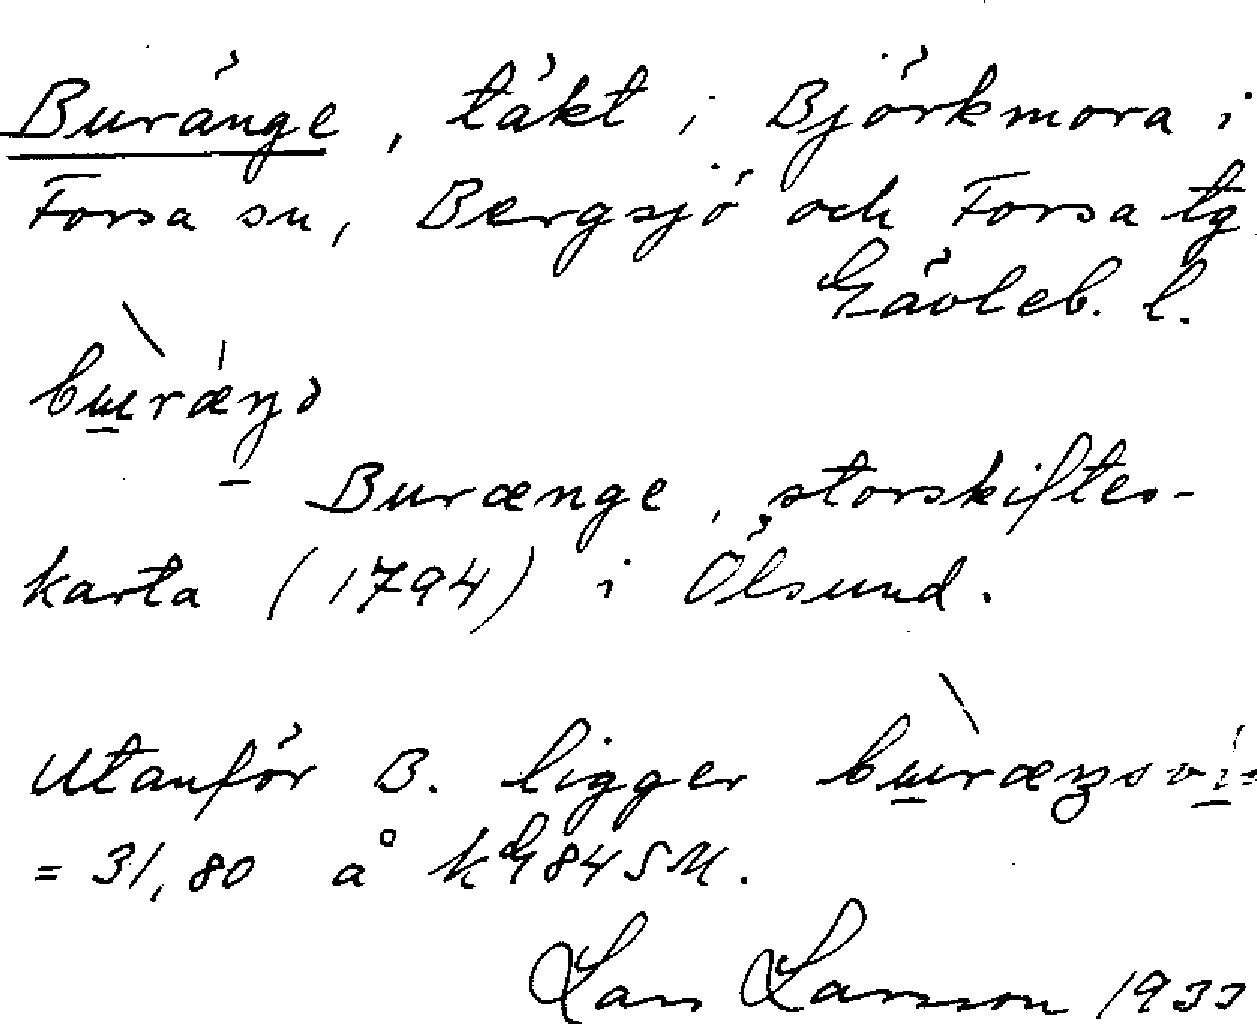 Buränge, täkt i Björkmora i
Forsa sn, Bergsjö och Forsa tg
Gävleb. l.
Burænge, storskiftes-
karta (1794) i Ölsund.
Utanför B. ligger
= 31,80 å kG84SM.
Lars Larsson 1933